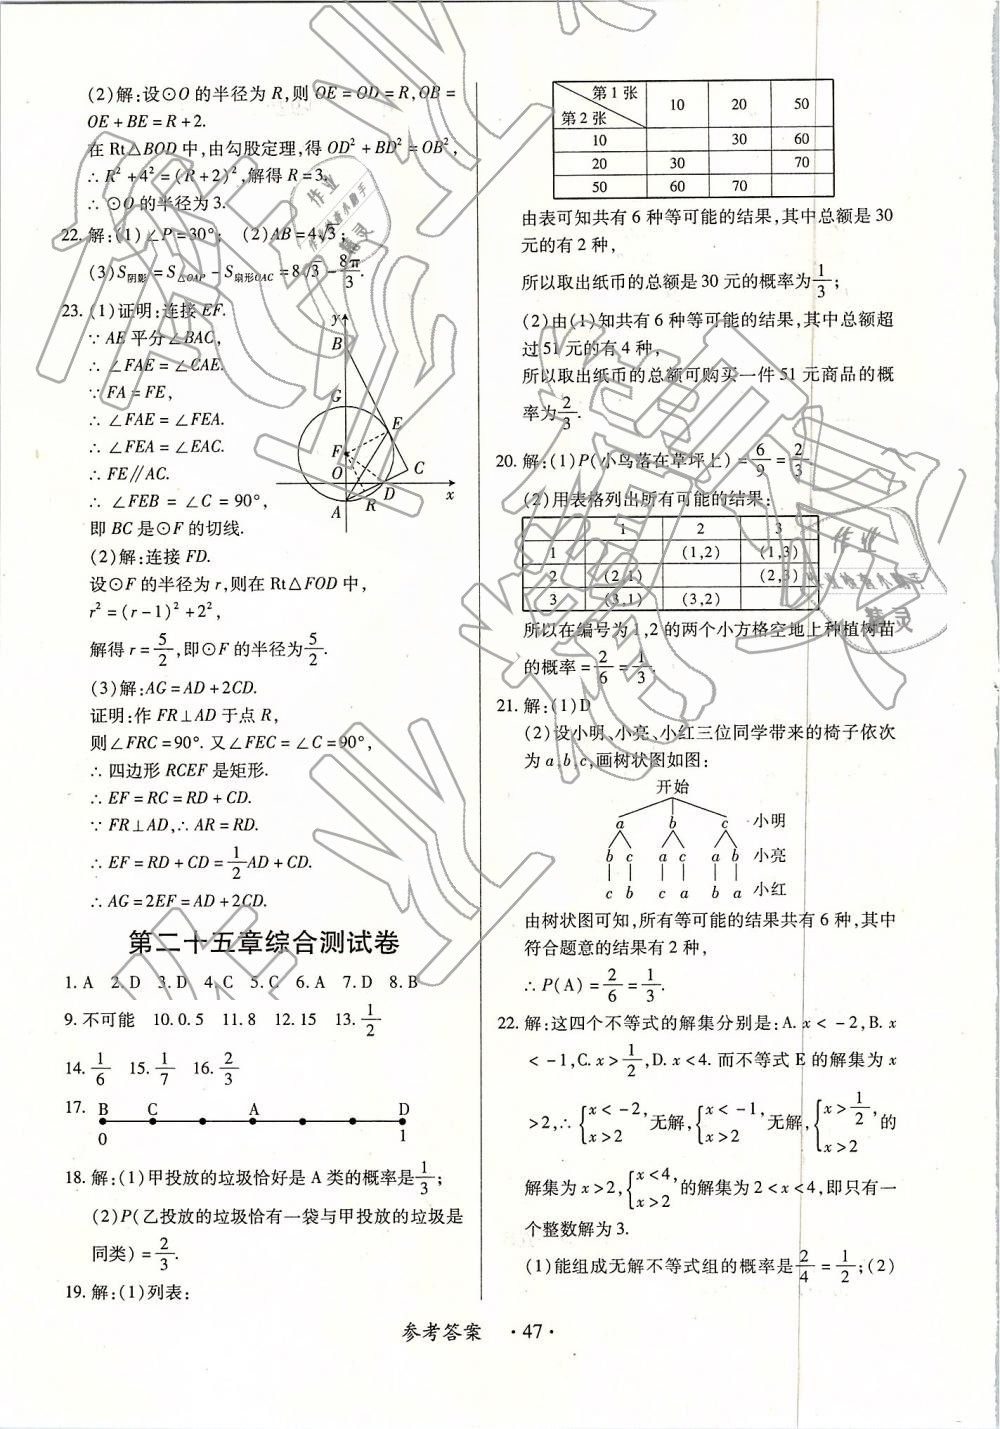 (2)解:设⊙O的半径为R,则OE=OD=R,OB=
OE+BE=R+2.
在Rt△BOD中,由勾股定理,得OD²+BD²=OB²,
∴R²+4²=(R+2)²,解得R=3.
∴⊙O的半径为3.
22.解:(1)∠P=30°; (2)AB=4√3;
(3)S阴影=S△OAP-S扇形OAC=8√3-8π/3.
23.(1)证明:连接EF.
∵AE平分∠BAC,
∴∠FAE=∠CAE.
∵FA=FE,
∴∠FAE=∠FEA.
∴∠FEA=∠EAC.
∴FE∥AC.
∴∠FEB=∠C=90°,
即BC是⊙F的切线.
y
B
G
E
F
O
C
D
x
A
R
(2)解:连接FD.
设⊙F的半径为r,则在Rt△FOD中,
r²=(r-1)²+2²,
解得r=5/2,即⊙F的半径为5/2.
(3)解:AG=AD+2CD.
证明:作FR⊥AD于点R,
则∠FRC=90°.又∠FEC=∠C=90°,
∴四边形RCEF是矩形.
∴EF=RC=RD+CD.
∵FR⊥AD,∴AR=RD.
∴EF=RD+CD=1/2AD+CD.
∴AG=2EF=AD+2CD.
第二十五章综合测试卷
1.A 2.D 3.D 4.C 5.C 6.A 7.D 8.B
9.不可能 10.0.5 11.8 12.15 13.1/2
14.1/6 15.1/7 16.2/3
17. B C A D
0 1
18.解:(1)甲投放的垃圾恰好是A类的概率是1/3;
(2)P(乙投放的垃圾恰有一袋与甲投放的垃圾是
同类)=2/3.
19.解:(1)列表:
第1张 10 20 50
第2张
10 30 60
20 30 70
50 60 70
由表可知共有6种等可能的结果,其中总额是30
元的有2种,
所以取出纸币的总额是30元的概率为1/3;
(2)由(1)知共有6种等可能的结果,其中总额超
过51元的有4种,
所以取出纸币的总额可购买一件51元商品的概
率为2/3.
20.解:(1)P(小鸟落在草坪上)=6/9=2/3.
(2)用表格列出所有可能的结果:
1 2 3
1 (1,2) (1,3)
2 (2,1) (2,3)
3 (3,1) (3,2)
所以在编号为1,2的两个小方格空地上种植树苗
的概率=2/6=1/3.
21.解:(1)D
(2)设小明、小亮、小红三位同学带来的椅子依次
为a,b,c,画树状图如图:
开始
a b c 小明
b c a c a b 小亮
c b c a b a 小红
由树状图可知,所有等可能的结果共有6种,其中
符合题意的结果有2种,
∴P(A)=2/6=1/3.
22.解:这四个不等式的解集分别是:A.x<-2,B.x
<-1,C.x>1/2,D.x<4.而不等式E的解集为x
>2,∴{x<-2, x>2 无解,{x<-1, x>2 无解,{x>1/2, x>2 的
解集为x>2,{x<4, x>2 的解集为2<x<4,即只有一
个整数解为3.
(1)能组成无解不等式组的概率是2/4=1/2;(2)
参考答案 ·47·